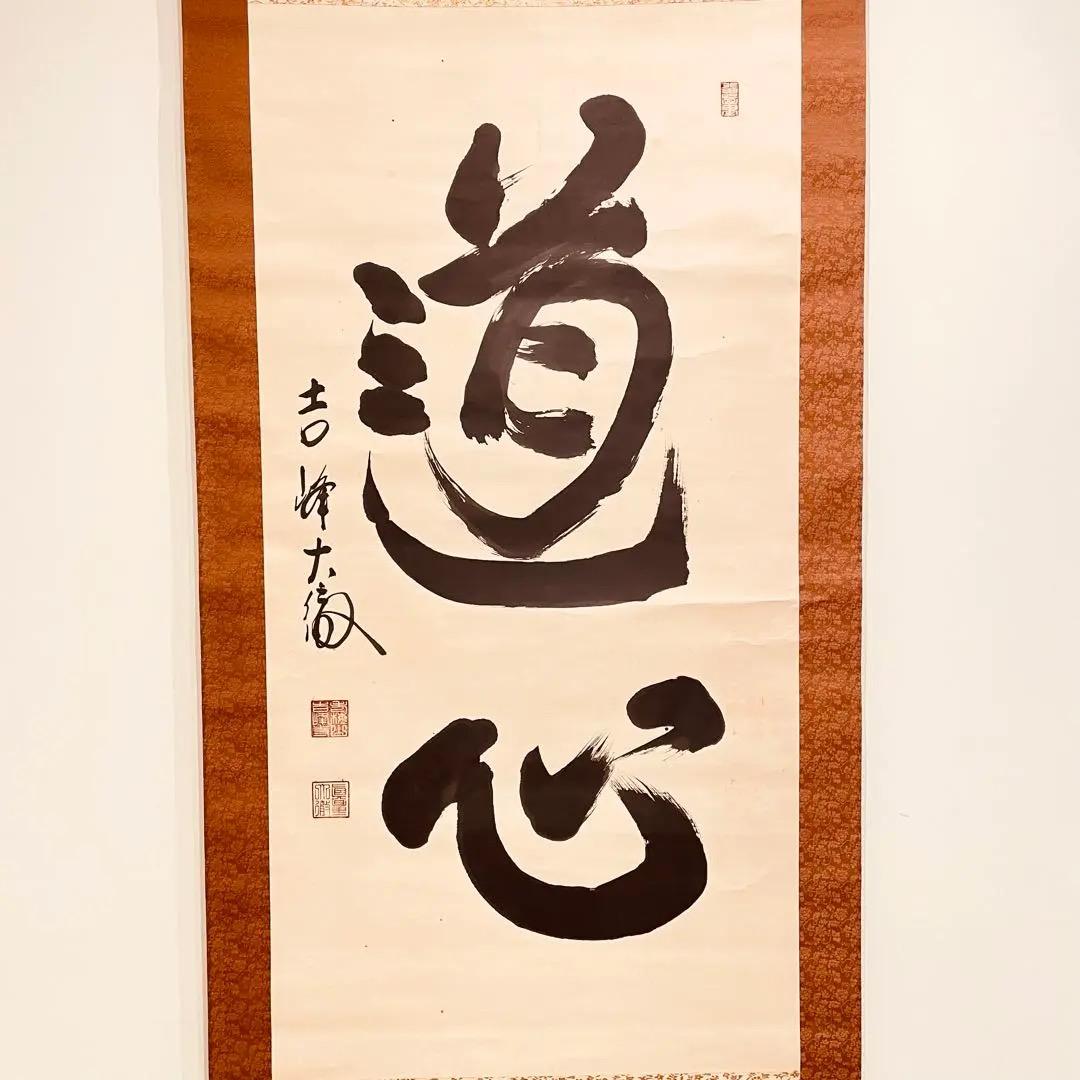 道心
吉峰大徹